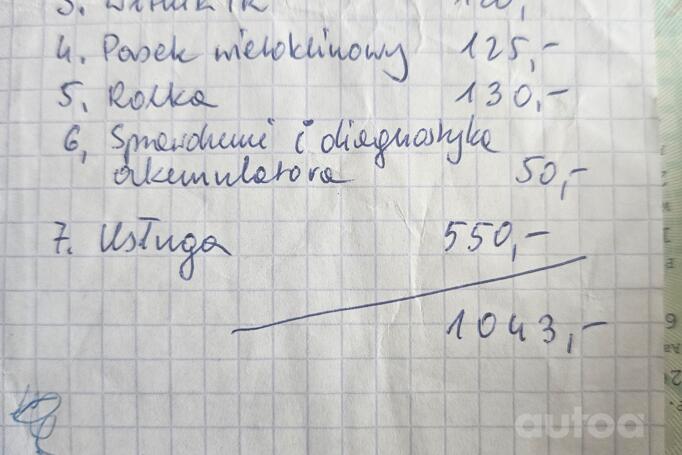 4. Pasek wieloklinowy 125,-
5. Rolka 130,-
6, Sprawdzenie i diagnostyka
akumulatora 50,-
7. Usługa 550,-
1043,-
autoa